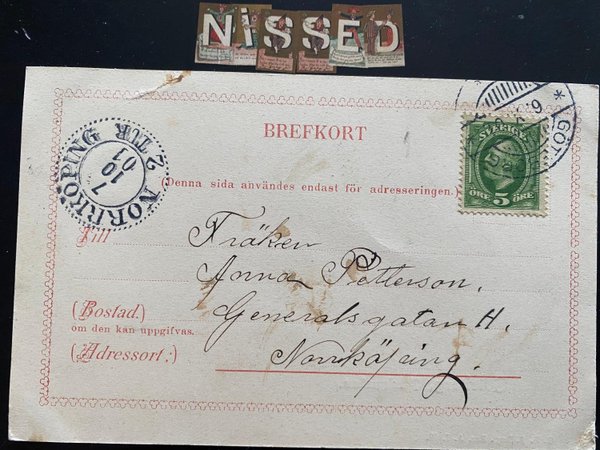 NISSED
BREFKORT
(Denna sida användes endast för adresseringen.)
NORRKÖPING
2 TUR
7
10
01
SVERIGE
ÖRE 5 ÖRE
GÖT
Till Fröken
Anna Petterson.
(Bostad.) Generalsgatan 11.
om den kan uppgifvas.
(Adressort:) Norrköping.